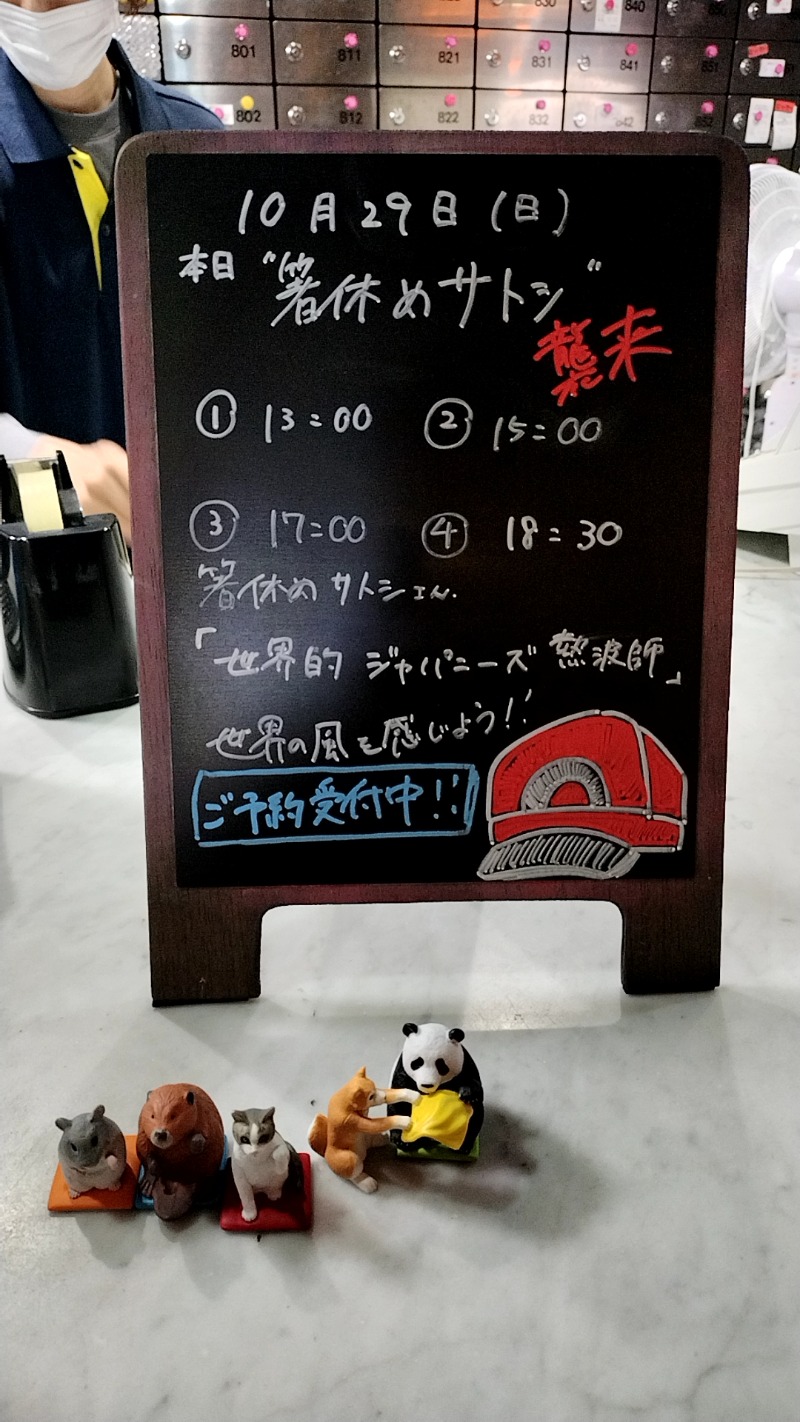 830
840
801
811
821
831
841
851
802
812
822
832
842
852
10月29日(日)
本日 "箸休めサトシ"
襲来
① 13:00 ② 15:00
③ 17:00 ④ 18:30
箸休めサトシさん
「世界的 ジャパニーズ 熱波師」
世界の風を感じよう!!
ご予約受付中!!